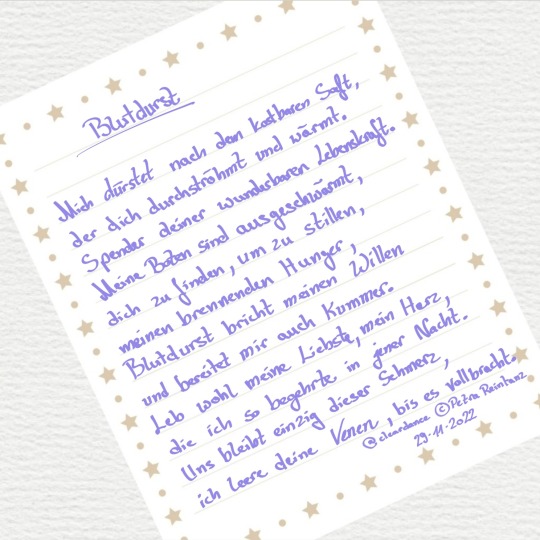 Blutdurst
Mich dürstet nach dem kostbaren Saft,
der dich durchströhmt und wärmt.
Spender deiner wunderbaren Lebenskraft.
Meine Boten sind ausgeschwärmt,
dich zu finden, um zu stillen,
meinen brennenden Hunger,
Blutdurst bricht meinen Willen
und bereitet mir auch Kummer.
Leb wohl meine Liebste, mein Herz,
die ich so begehrte in jener Nacht.
Uns bleibt einzig dieser Schmerz,
ich leere deine Venen, bis es vollbracht.
@cleardance ©Petra Reintanz
29.11.2022